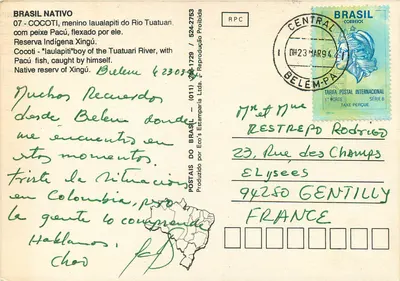 BRASIL NATIVO
07 - COCOTI, menino Iaulapiti do Rio Tuatuari
com peixe Pacú, flexado por ele.
Reserva Indígena Xingú.
Cocoti - "Iaulapiti"boy of the Tuatuari River, with
Pacú fish, caught by himself.
Native reserv of Xingú.
Belem 230394
Muchos Recuerdos
desde Belem donde
me encuentro en
estos momentos.
Triste la situacion
en Colombia, pero
la gente lo comprende
Hablamos,
Chao
POSTAIS DO BRASIL - (011) 524-2753
Produzido por Eco's Estamparia Ltda. / Reprodução Proibida
RPC
CENTRAL
23 MAR 94
BELEM-PA
BRASIL
TARIFA POSTAL INTERNACIONAL
1º PORTE SÉRIE B
TAXE PERÇUE
Mr et Mme
RESTREPO Rodrigo
23, Rue des Champs
Elysees
94250 GENTILLY
FRANCE